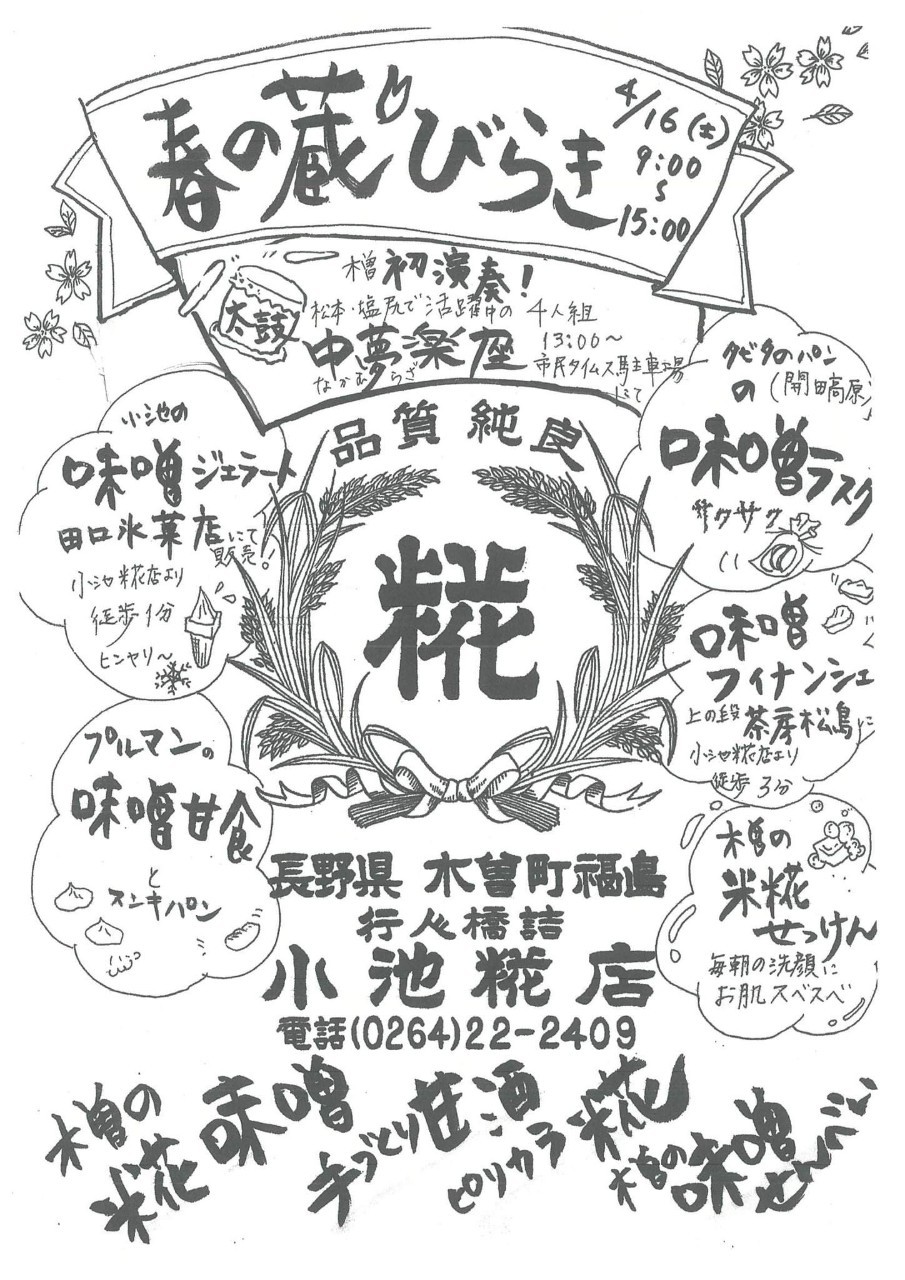 春の蔵びらき
4/16(土)
9:00
~
15:00
木曽初演奏!
太鼓
松本・塩尻で活躍中の4人組
中夢楽座
なかむらざ
13:00〜
市民タイムス駐車場
にて
品質純良
糀
小池の
味噌ジェラート
田口氷菓店にて
販売!
小池糀店より
徒歩1分
ヒンヤリ〜
タビタのパン
の(開田高原)
味噌ラスク
サクサク
味噌
フィナンシェ
上の段 茶房松島に
小池糀店より
徒歩3分
プルマンの
味噌甘食
と
スンキパン
木曽の
米糀
せっけん
毎朝の洗顔に
お肌スベスベ
長野県 木曽町福島
行人橋詰
小池糀店
電話(0264)22-2409
木曽の
米糀味噌
手づくり甘酒
ピリカラ糀
木曽の味噌せんべい